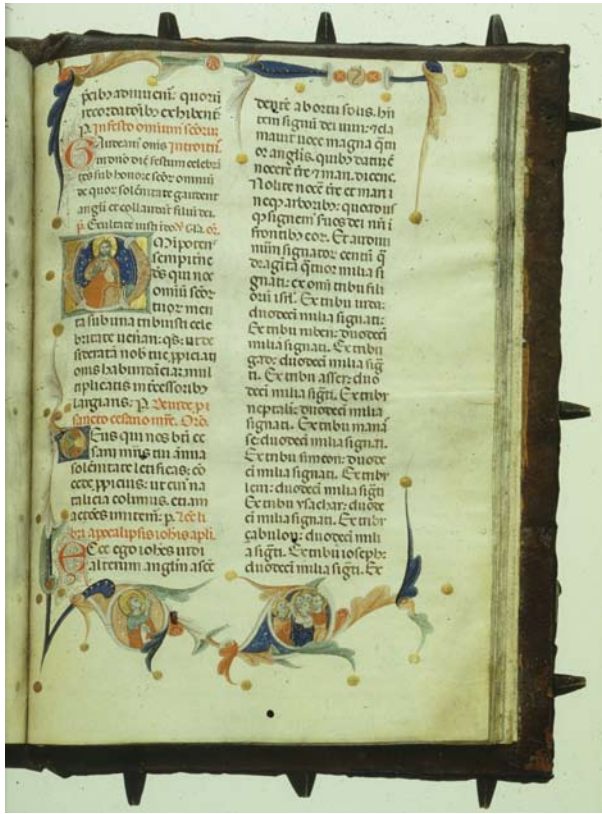 p̄cib; adiuuem̄: quoꝝ
In festo omnium sc̄oꝝ
Gaudeam̄ om̄s Introit̄.
in dn̄o diē festum celebrā
tes sub honore sc̄oꝝ omniū
de quoꝝ solēnitate gaudent
angli et collaudāt filiū dei.
Oīpoten
sempitne
d̄s qui nos
omniū sc̄oꝝ
tuoꝝ meri
ta sub una tribuisti cele
britate uenāri: qs: ut de
siderātā nob̄ tue p̄piciatī
onis habundātiā: mul
tiplicatis int̄cessorib;
largiaris: p̄.
sancto cesario
Deus qui nos bt̄i ce
sarij mr̄is tui annua
solēnitate letificas: cō
cede p̄picius: ut cui na
talicia colimus. etiam
actōes imitem̄: p̄. Lec̄ li
bri apocalipsis ioh̄is apl̄i.
Ecce ego ioh̄es uidi
alterum anglm̄ ascē
dentē ab ortu solis. hn̄
tem signū dei uiui: ⁊ cla
mauit uoce magna q̄tu
or anglis. quib; datū ē
nocere tr̄e ⁊ mari. dicens.
Nolite nocē tr̄e et mari
neq; arborib;: quoadus
q; signem̄ s̄uos dei nr̄i ī
frontib; eoꝝ. Et audiui
num̄m signatoꝝ centū q̄
draginta q̄tuor milia si
gnati: ex om̄i tribu fili
oꝝ isrl̄. Ex tribu iuda:
duodeci milia signati:
Ex tribu ruben: duodeci
milia signati. Ex tribu
gad: duodeci milia siḡ
ti. Ex tribu asser: duo
deci milia signati. Ex tribu
neptali: duodeci milia
signati. Ex tribu manas
se: duodeci milia signati.
Ex tribu simeon: duode
ci milia signati. Ex tribu
leui: duodeci milia siḡti
Ex tribu ysachar: duode
ci milia signati. Ex tribu
çabulon: duodeci mili
a siḡti. Ex tribu ioseph:
duodeci milia siḡti. Ex